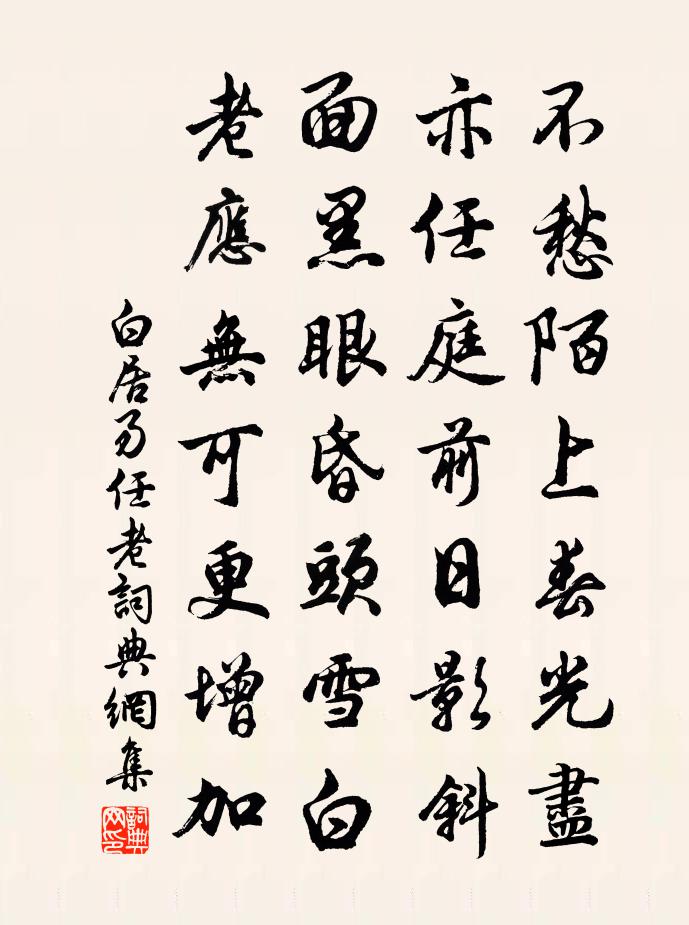 不愁陌上春光盡
亦任庭前日影斜
面黑眼昏頭雪白
老應無可更增加
白居易任老詞典網集
詞典網印